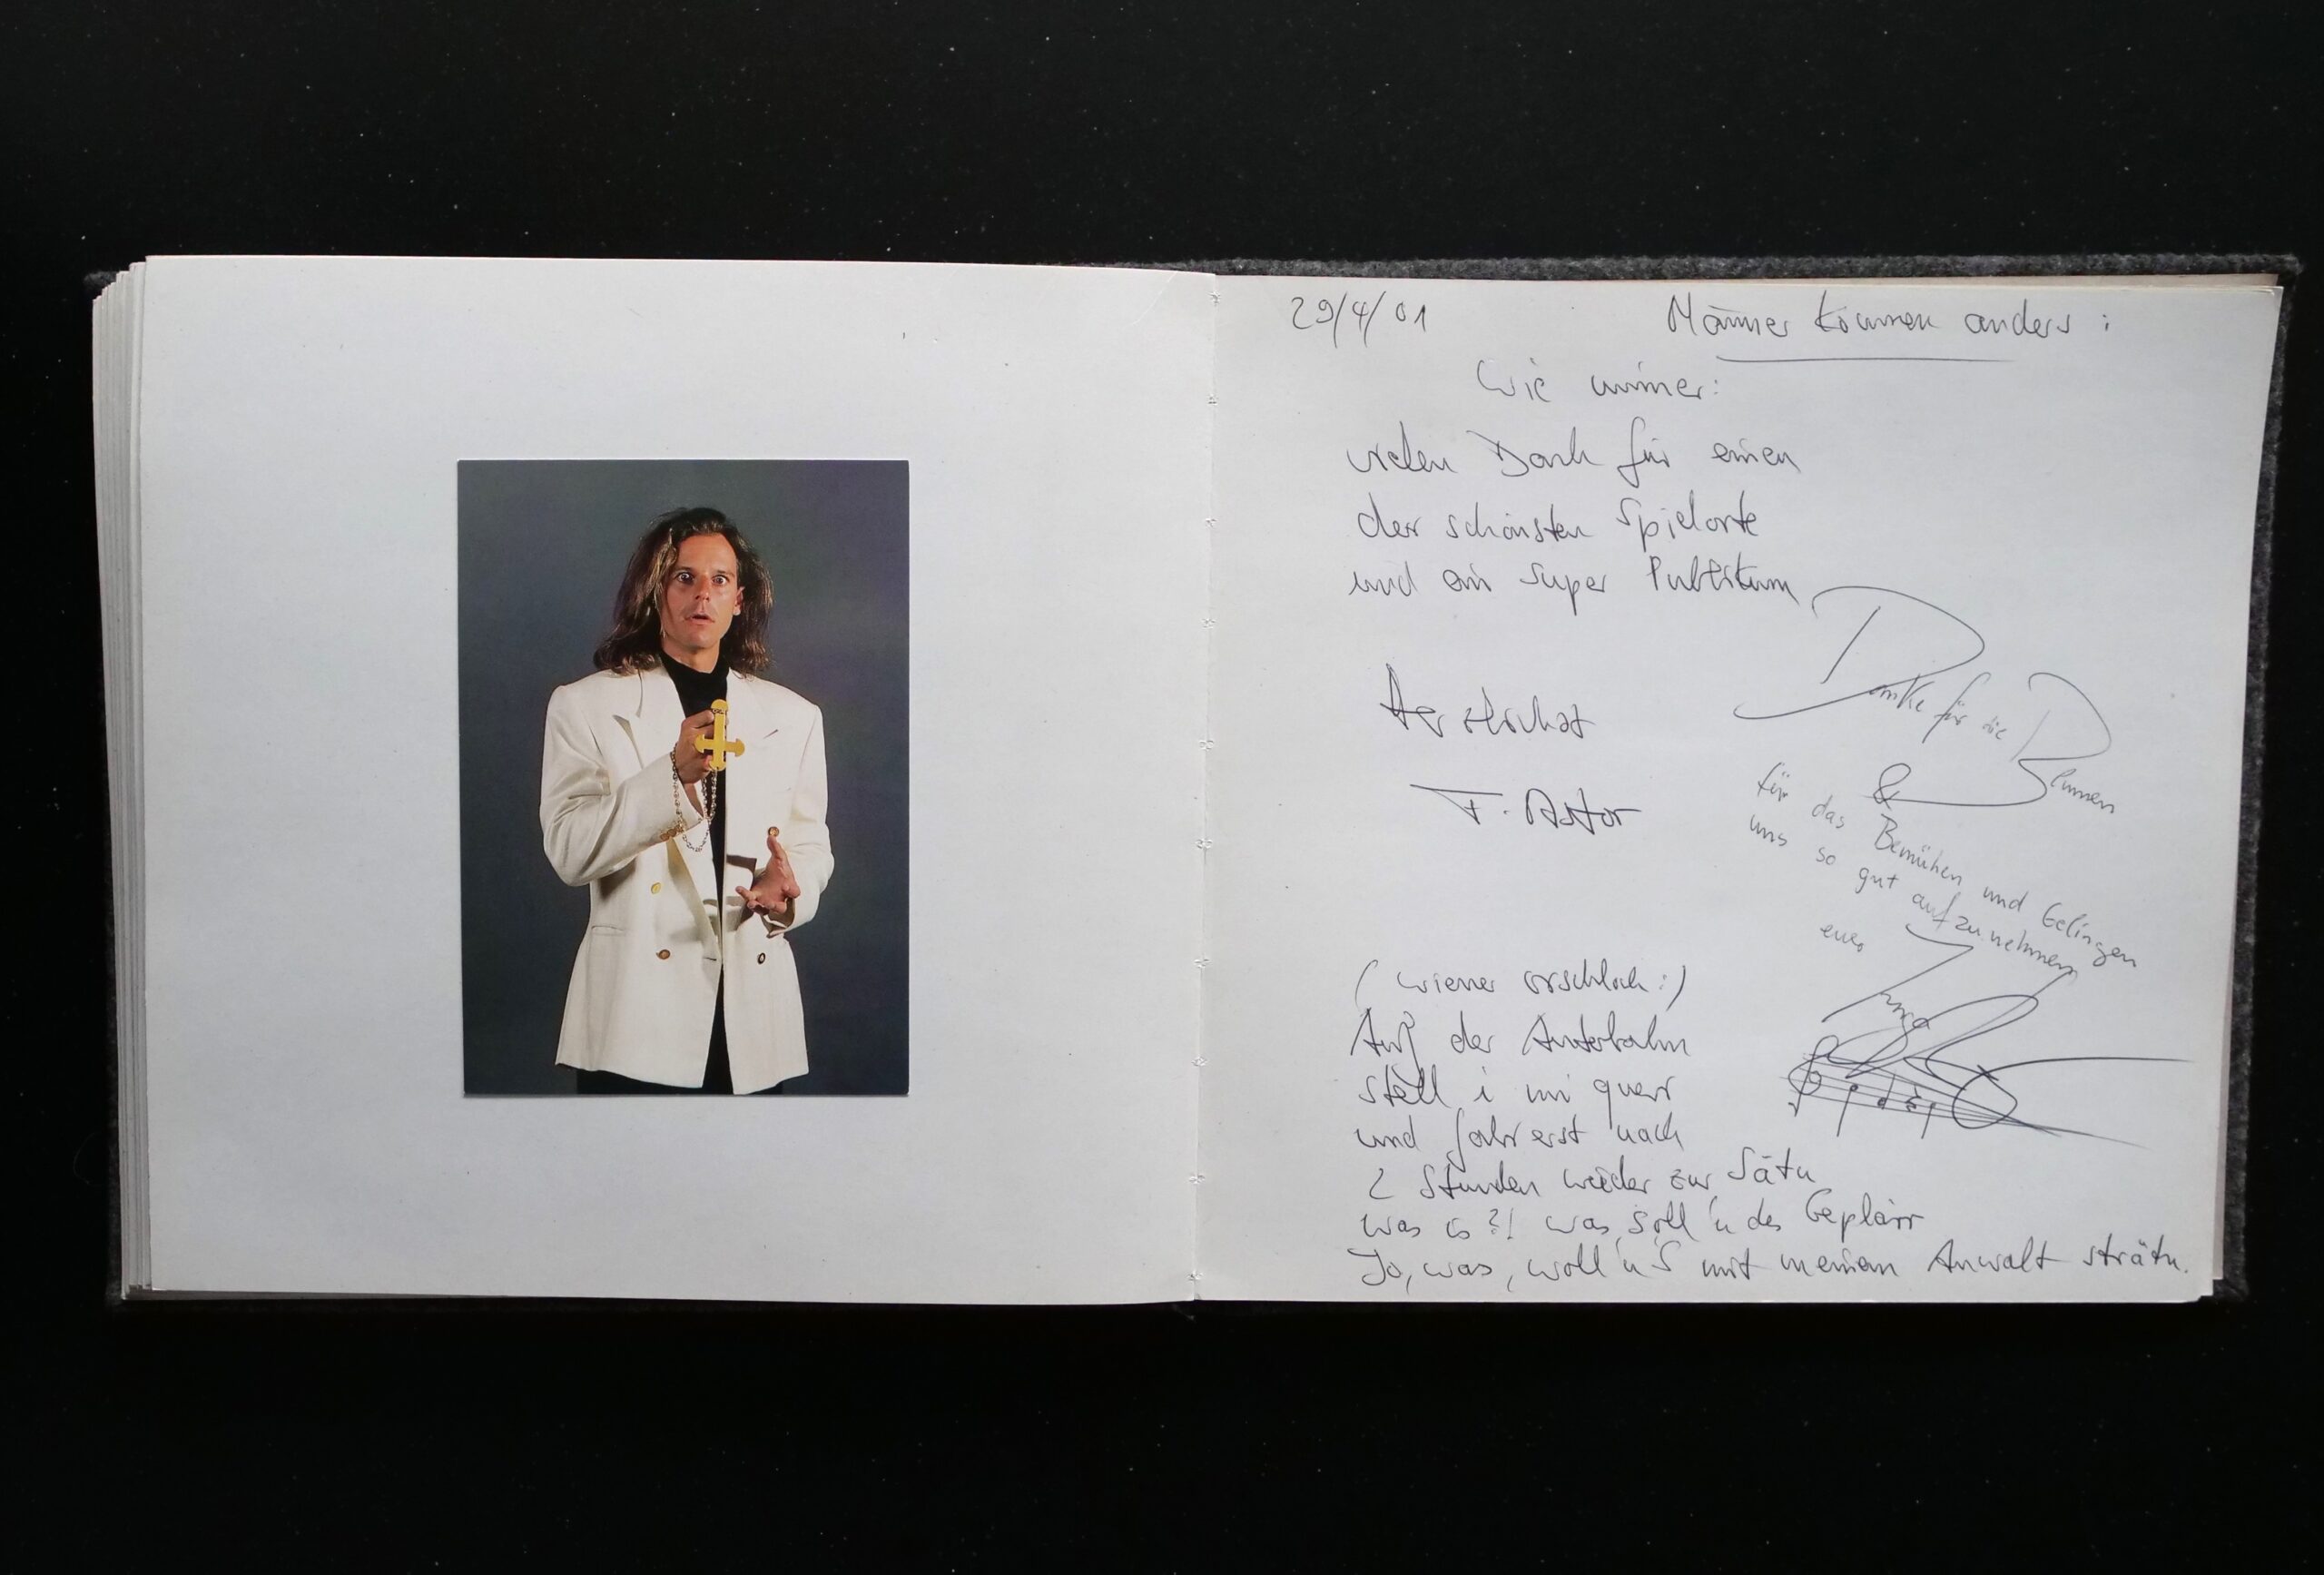 29/4/01 Männer kommen anders :
Wie immer:
vielen Dank für einen
der schönsten Spielorte
und ein super Publikum
Herzlichst
F. Astor
Danke für die
Blumen
&
für das Bemühen und Gelingen
uns so gut aufzunehmen
euer
(Wiener Orschloch:)
Auf der Autobahn
stell i mi quer
und fahr erst nach
2 Stunden wieder zur Sätn
was is?! was soll'n des Geplärr
Jo, was, woll'n S mit meinem Anwalt strätn.